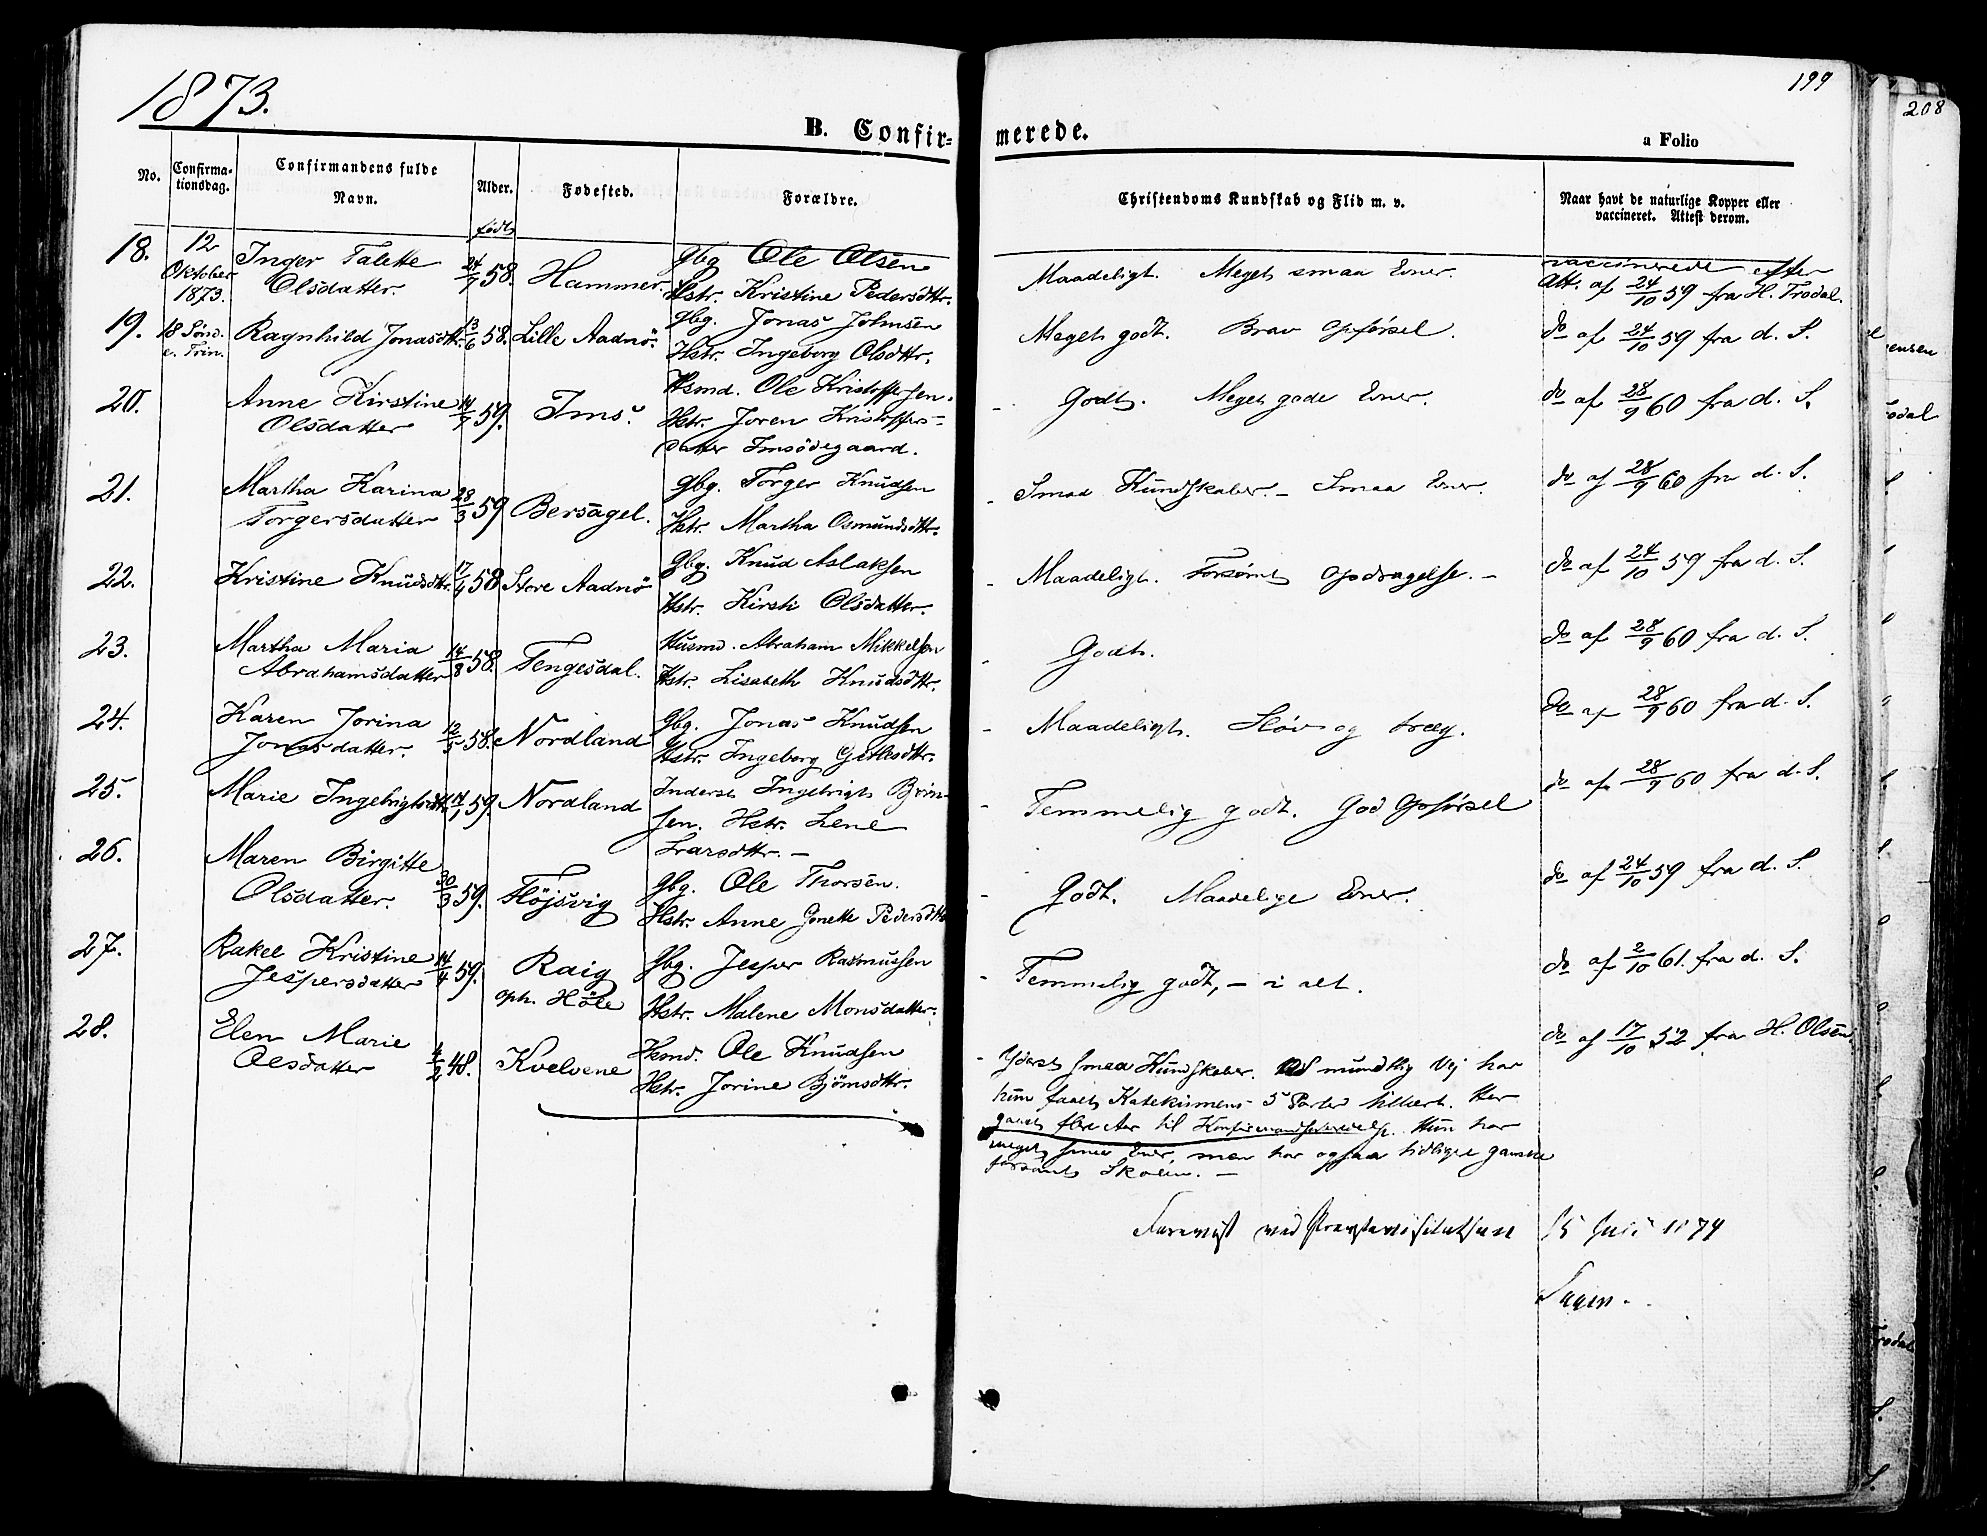 1873.
199
208
B. Confir-
merede.
a Folio
No.
Confirma-
tionsdag.
Confirmandens fulde
Navn.
Alder.
Fødested.
Forældre.
Christendoms Kundskab og Flid m. v.
Naar havt de naturlige Kopper eller
vaccineret. Attest derom.
født
18. 12 Inger Talette 24/9 58. Hammer. Gbg Ole Olsen Maadeligt. Meget smaa Evner. vaccinerede efter
Oktober Olsdatter. Hstr. Kristine Pedersdttr. Att. af 24/10 59 fra H. Trodal.
1873.
19. 18 Sønd. Ragnhild Jonasdttr. 13/6 58. Lille Aadnö. Gbg. Jonas Johnsen Meget godt. Brav Opførsel. do af 24/10 59 fra d. S.
e. Trin. Hstr. Ingeborg Olsdttr.
20. Anne Kirstine 14/9 59. Ims. Hsmd. Ole Kristoffersen. Godt. Meget gode Evner. do af 28/9 60 fra d. S.
Olsdatter Hstr. Joren Kristoffers-
datter Imsödegaard.
21. Martha Karina 28/3 59 Bersagel. Gbg. Torger Knudsen Smaa Kundskaber. - Smaa Evner. do af 28/9 60 fra d. S.
Torgersdatter Hstr. Martha Osmundsdttr.
22. Kristine Knudsdttr. 17/9 58 Store Aadnö Gbg. Knud Aslaksen Maadeligt. Forsømt Opdragelse. - do af 24/10 59 fra d. S.
Hstr. Kirsti Olsdatter.
23. Martha Maria 14/8 58. Tengesdal. Husmd. Abraham Mikkelsen Godt. do af 28/9 60 fra d. S.
Abrahamsdatter Hstr. Lisabeth Knudsdttr.
24. Karen Jorina 12/5 58. Nordland Gbg. Jonas Knudsen Maadeligt. Sløv og træg. do af 28/9 60 fra d. S.
Jonasdatter. Hstr. Ingeborg Gitlesdttr.
25. Marie Ingebrigtsdttr. 59. Nordland Inderst Ingebrigt Brin- Temmelig godt. God Opførsel do af 28/9 60 fra d. S.
sen. Hstr. Lene
Larsdttr. -
26. Maren Birgitte 30/3 59. Fløjsvig Gbg. Ole Thorsen. Godt. Maadelige Evner. do af 24/10 59 fra d. S.
Olsdatter. Hstr. Anne Jonette Pedersdttr
27. Rakel Kristine 14/4 59. Raig Gbg. Jesper Rasmussen Temmelig godt, - i alt. do af 2/10 61. fra d. S.
Jespersdatter oph. Höle Hstr. Malene Monsdatter.
28. Elen Marie 4/2 48. Kvelvene Hsmd. Ole Knudsen Yderst smaa Kundskaber. Ad mundtlig Vej har do af 17/10 52 fra H. Olsen
Olsdatter Hstr. Jorine Björnsdttr. hun faaet Katekismens 5 Parter tillært. Har
gaaet flere Aar til Konfirmandforberedelse. Hun har
meget smaa Evner, men har ogsaa tidligere ganske
forsömt Skolen. -
Forevist ved Provstevisitatsen 15 Juli 1874